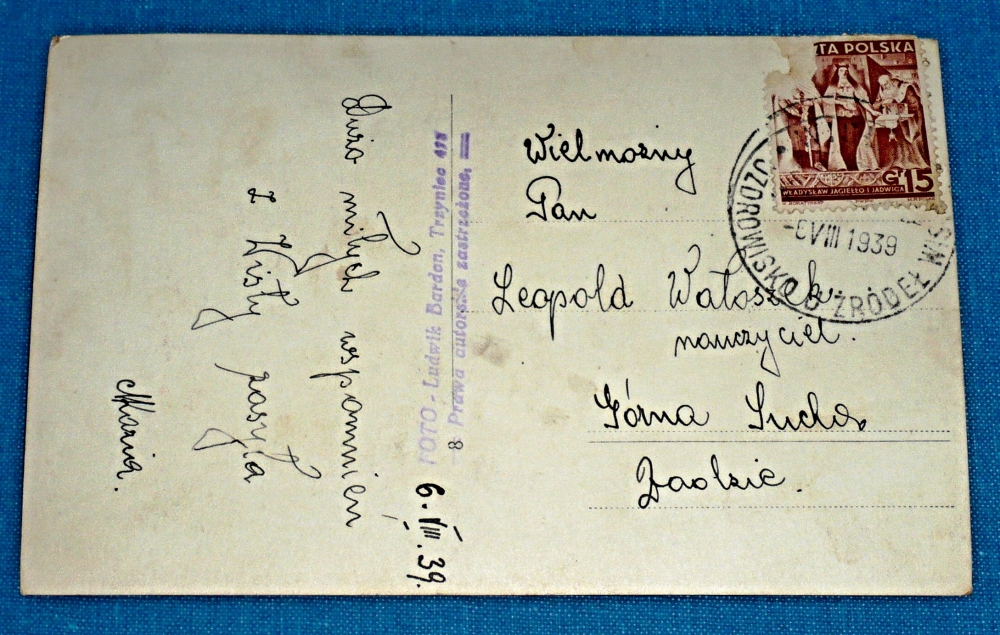 Dużo miłych wspomnień
z Wisły zasyła
Maria.
6. VIII. 39.
FOTO - Ludwik Bardon, Trzyniec 418
Prawa autorskie zastrzeżone.
8
TA POLSKA
WŁADYSŁAW JAGIEŁŁO I JADWIGA
G 15
UZDROWISKO U ŹRÓDEŁ WIS
-6 VIII 1939
Wielmożny
Pan
Leopold Wałoszek
nauczyciel.
Górna Sucha
Zaolzie.